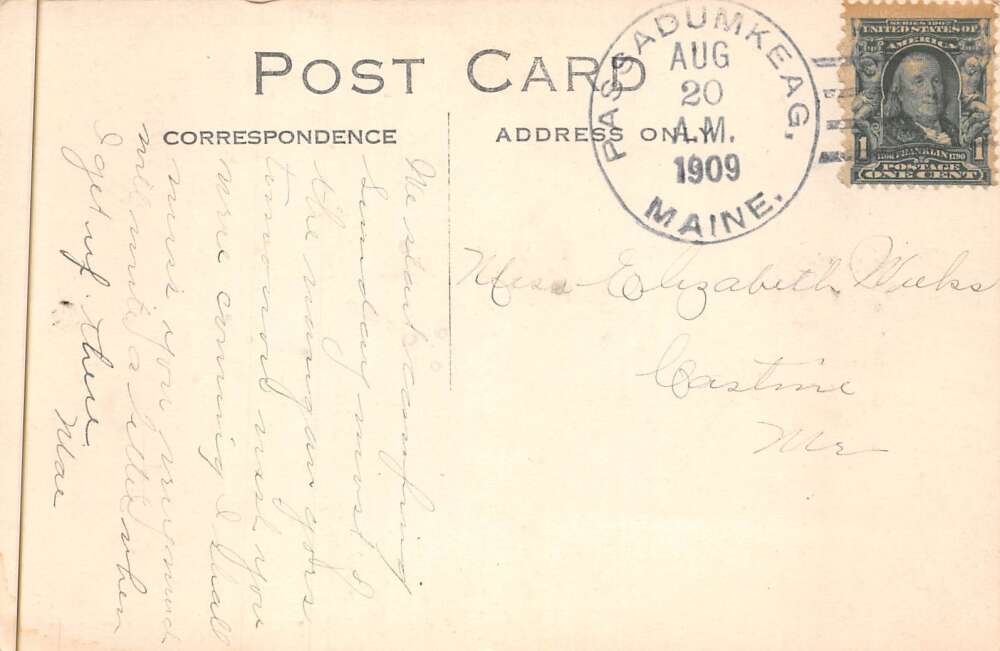 POST CARD
CORRESPONDENCE
ADDRESS ONLY
PASSADUMKEAG,
AUG
20
A.M.
1909
MAINE.
SERIES 1902
UNITED STATES OF
AMERICA
1706 FRANKLIN 1790
POSTAGE
1 ONE CENT 1
Miss Elizabeth Wicks
Castine
Me
We start camping
Sunday most I
the wangan goes
tomorrow wish you
were coming I shall
miss you very much
will write a letter when
I get up there
Mae